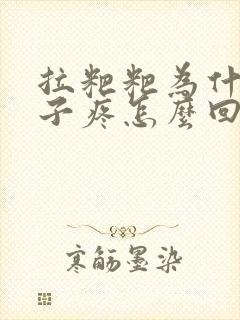 拉粑粑為什
子疼怎麼回
寒筋墨染